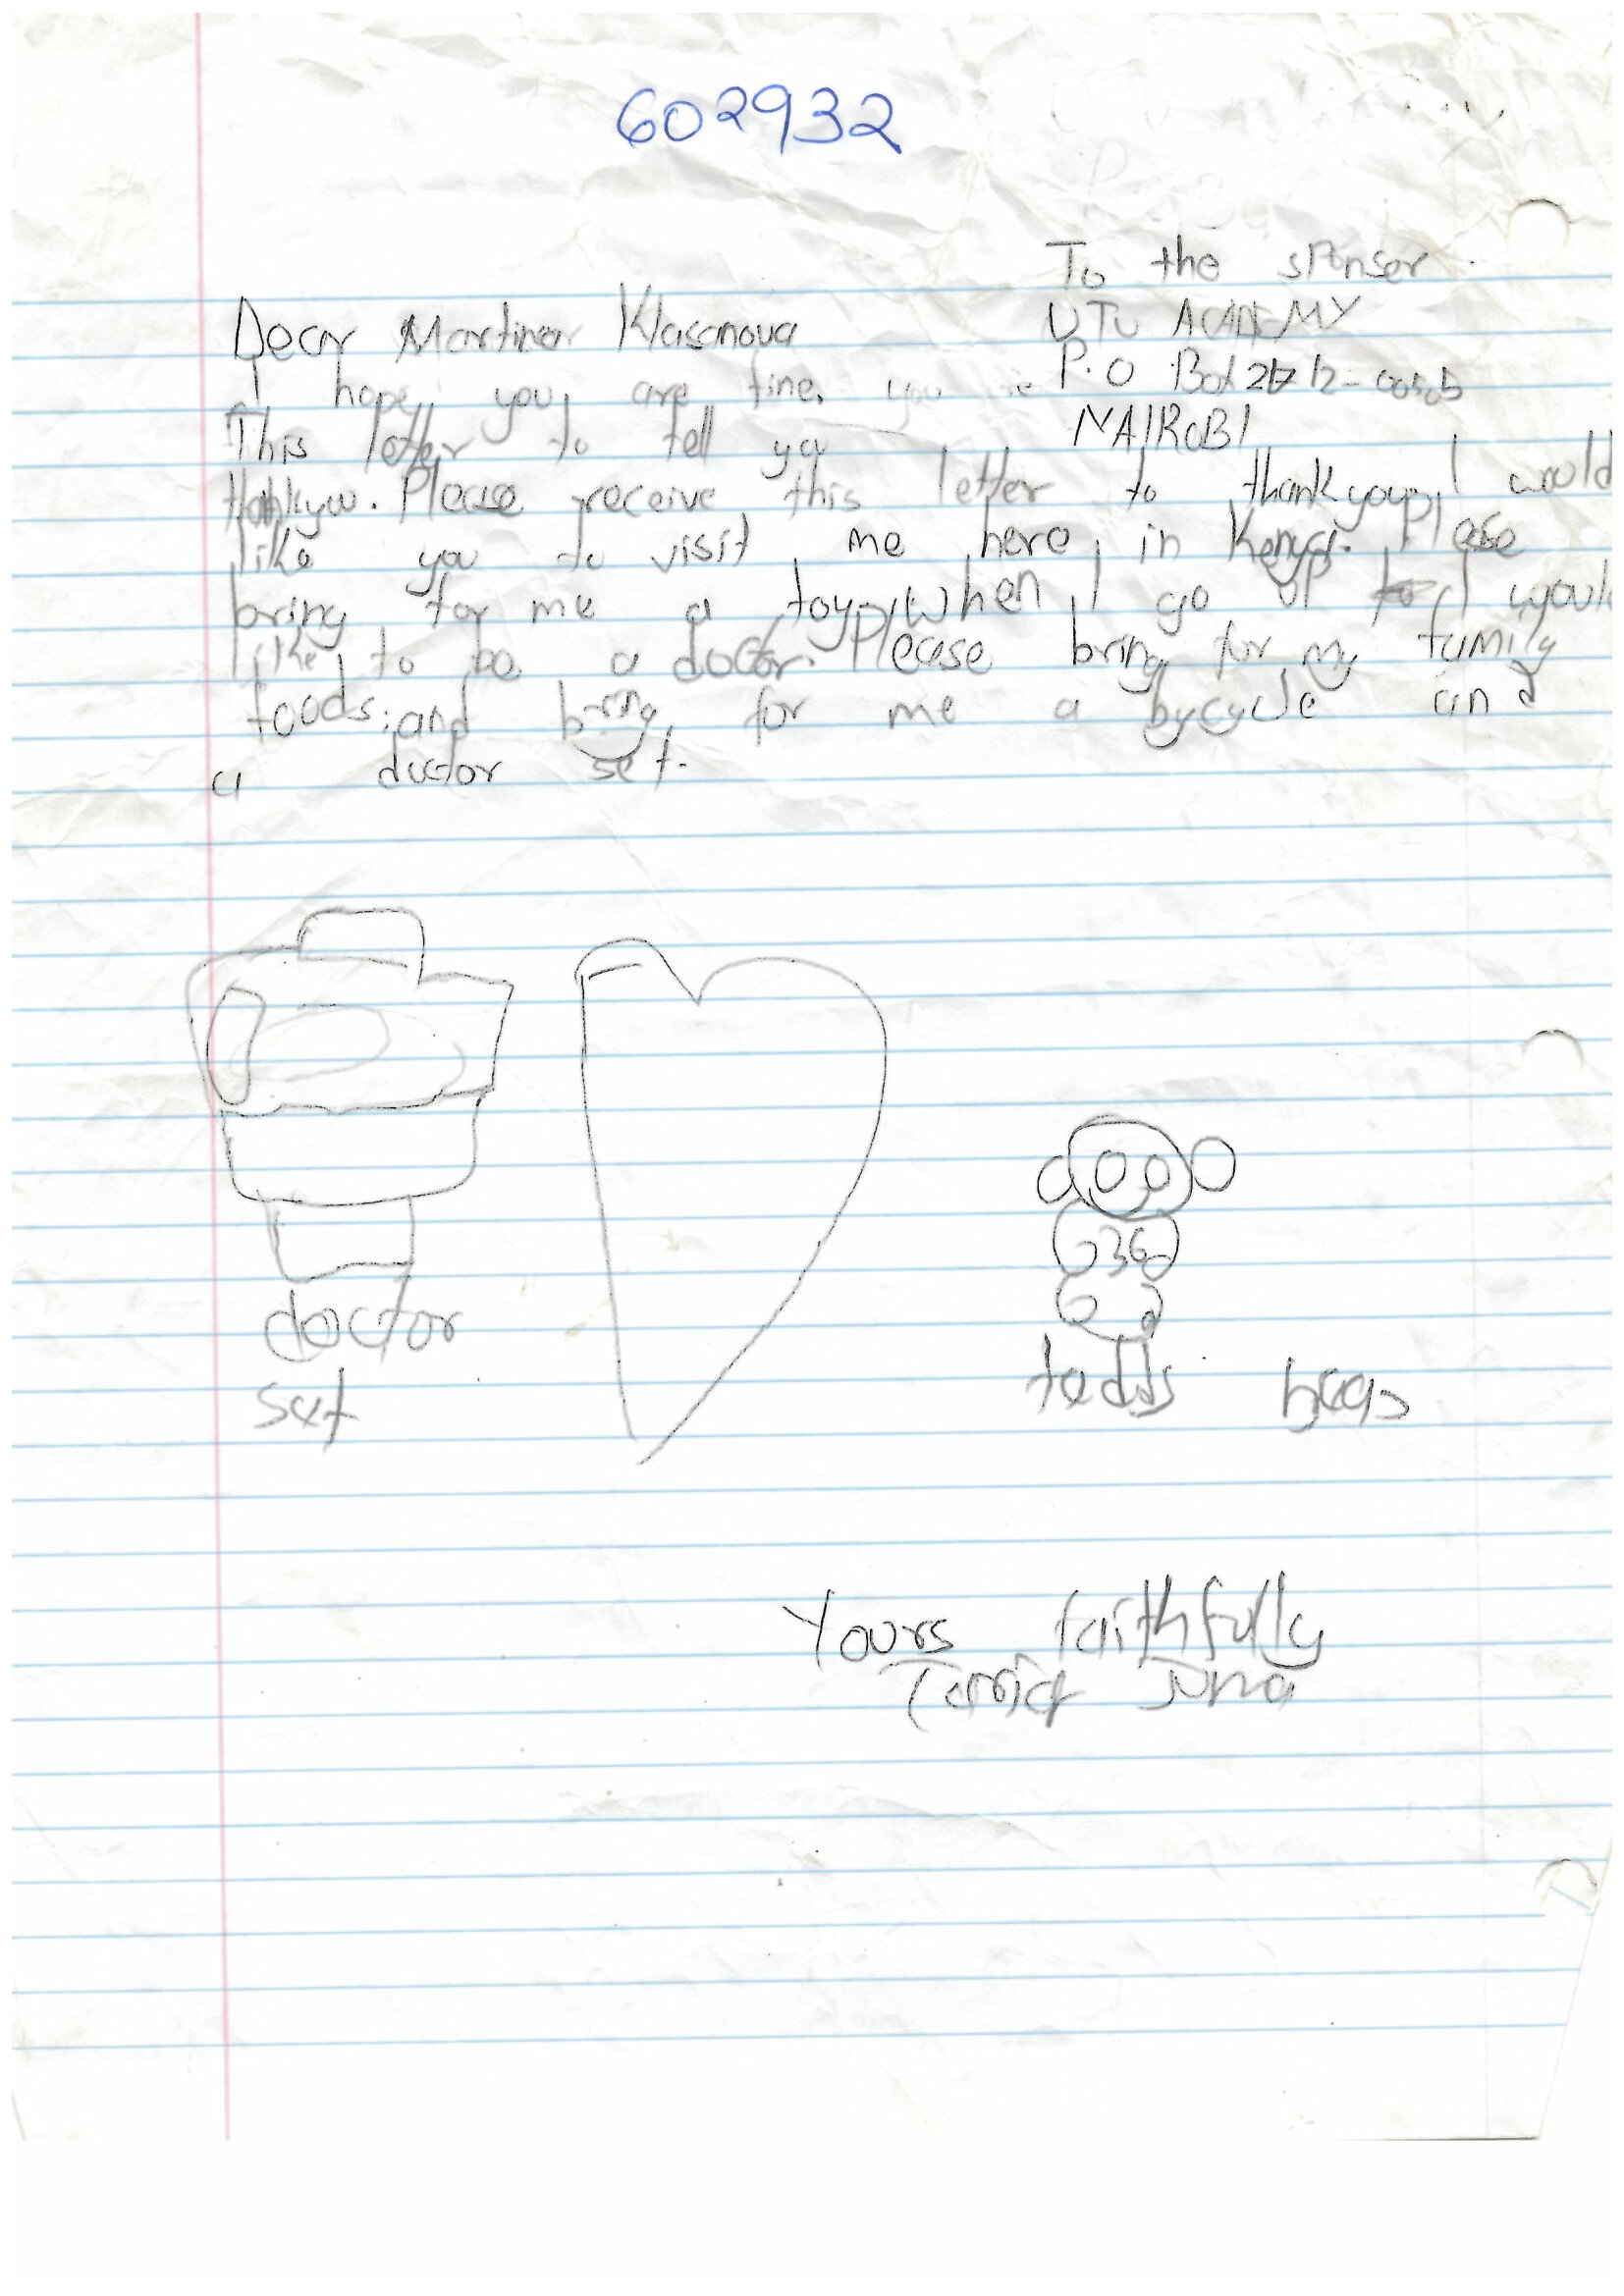 602932
To the sponser
Dear Martiner Klasanova
UTU ACADEMY
I hope you are fine. you
P.O Box
This letter to tell you
NAIROBI
thankyou. Please receive this letter to thank you, I would
like you to visit me here in Kenya. Please
bring for me a toy, when I go up I would
like to be a doctor. Please bring for my family
foods; and bring for me a bycycle and
a doctor set.
doctor
set
Yours faithfully
Juma